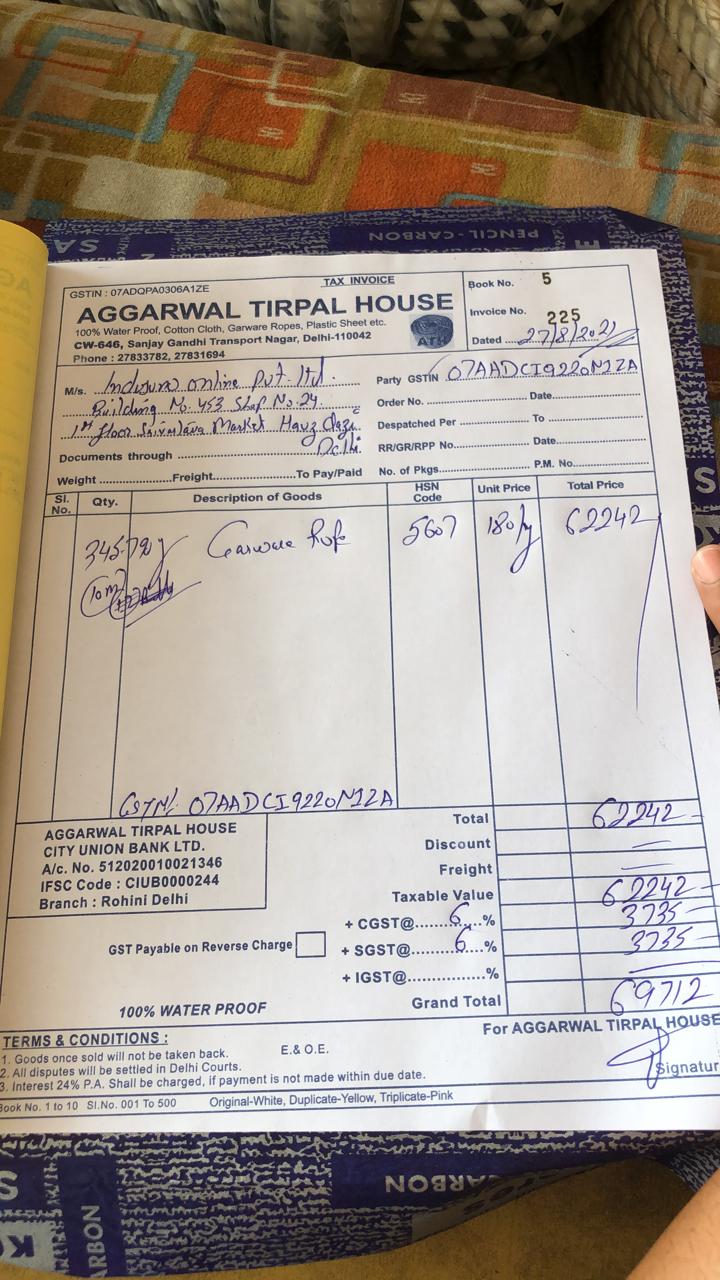 PENCIL-CARBON
SA
TAX INVOICE
GSTIN : 07ADQPA0306A1ZE
AGGARWAL TIRPAL HOUSE
100% Water Proof, Cotton Cloth, Garware Ropes, Plastic Sheet etc.
CW-646, Sanjay Gandhi Transport Nagar, Delhi-110042
Phone : 27833782, 27831694
ATH
Book No. 5
Invoice No. 225
Dated 27/8/2021
M/s. Online Pvt. Ltd.
Building No. 453 Shop No. 24
1st floor Market Hauz
Delhi
Party GSTIN 07AADCI9220N1ZA
Order No. Date
Despatched Per To
RR/GR/RPP No. Date
No. of Pkgs. P.M. No.
Documents through
Weight Freight To Pay/Paid
Sl. No. Qty. Description of Goods HSN Code Unit Price Total Price
Garware 5607 180/kg 62242
10m
GSTN 07AADCI9220N1ZA
AGGARWAL TIRPAL HOUSE
CITY UNION BANK LTD.
A/c. No. 512020010021346
IFSC Code : CIUB0000244
Branch : Rohini Delhi
Total 62242
Discount —
Freight —
Taxable Value 62242
+ CGST@ 6 % 3735
+ SGST@ 6 % 3735
+ IGST@ % —
Grand Total 69712
GST Payable on Reverse Charge
100% WATER PROOF
For AGGARWAL TIRPAL HOUSE
Signatur
TERMS & CONDITIONS :
E.& O.E.
1. Goods once sold will not be taken back.
2. All disputes will be settled in Delhi Courts.
3. Interest 24% P.A. Shall be charged, if payment is not made within due date.
Book No. 1 to 10 Sl.No. 001 To 500 Original-White, Duplicate-Yellow, Triplicate-Pink
CARBON
RBON